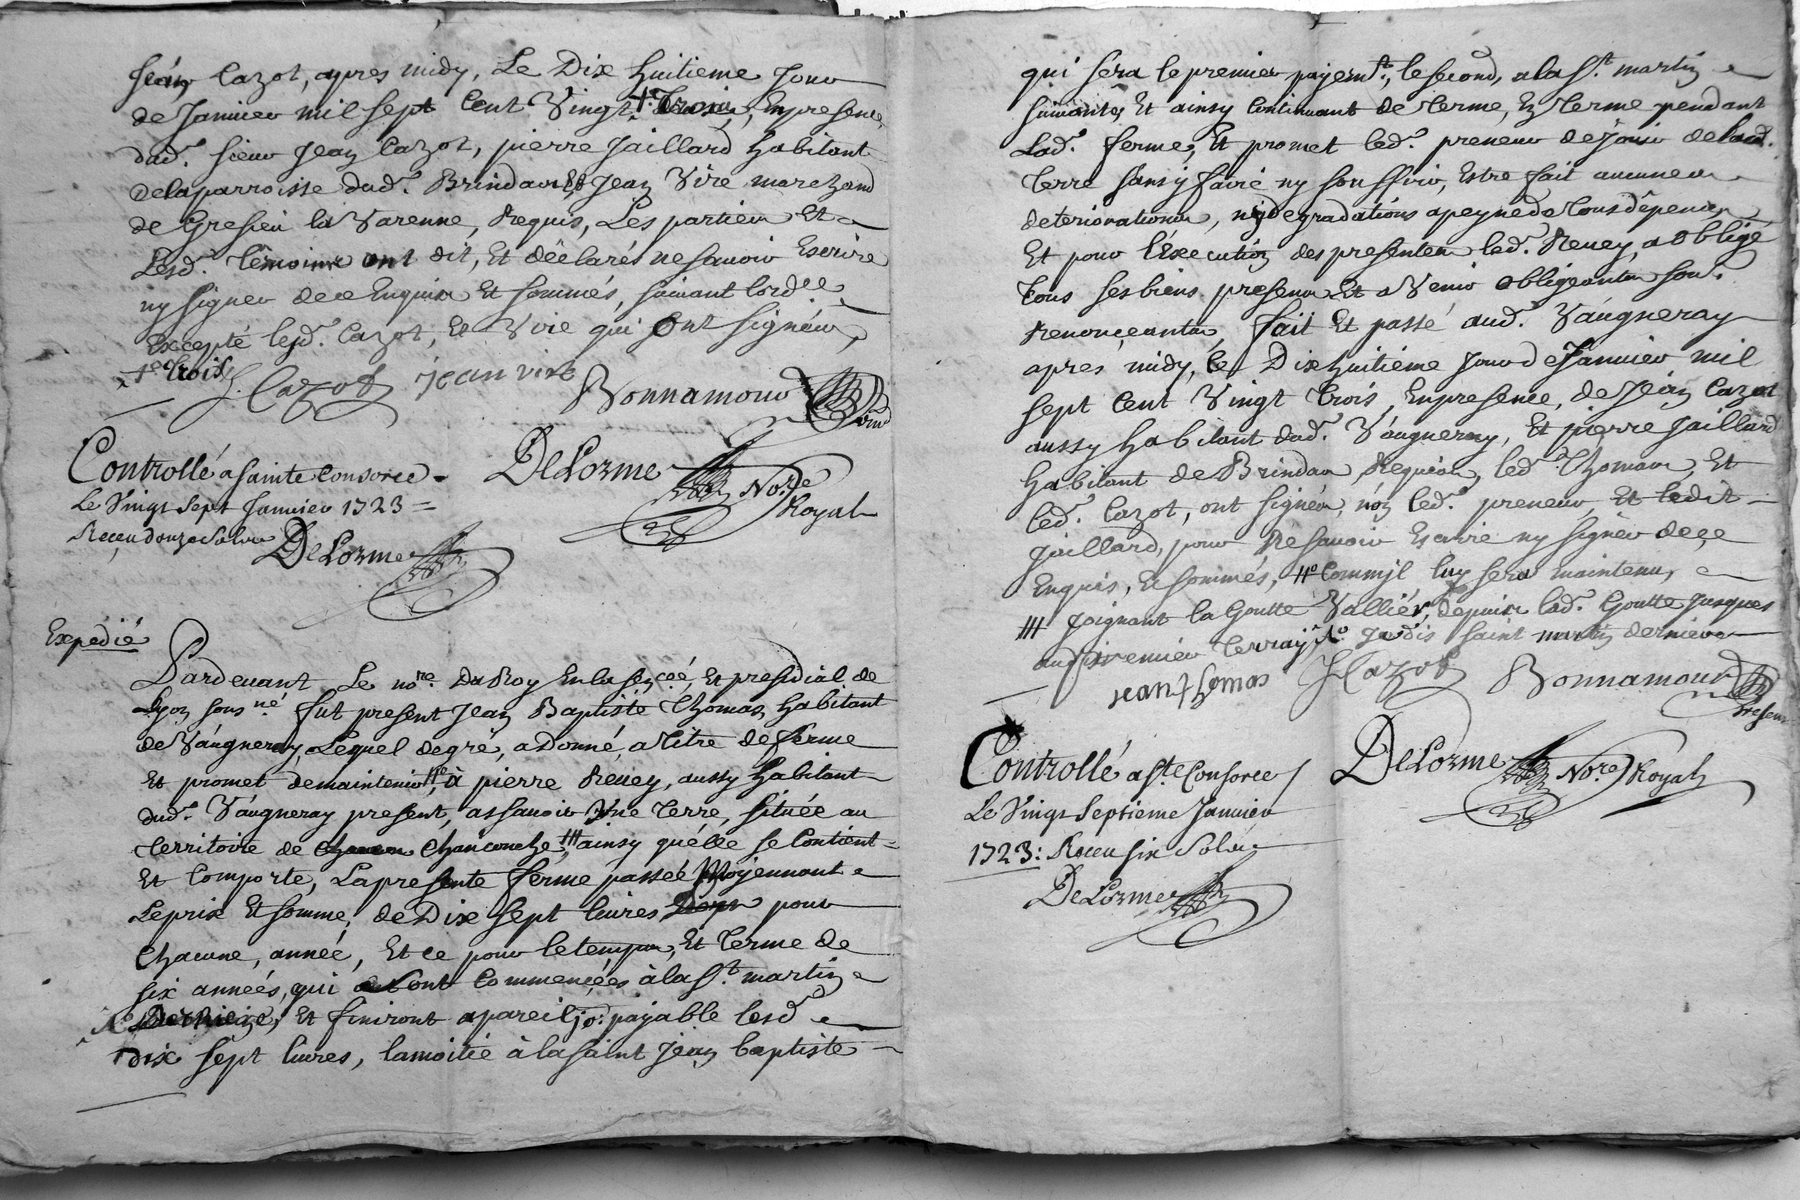 Jean Cazot, apres midy, Le Dix huitieme Jour
de Janvier mil sept Cent Vingt Trois, En presence
dud. sieur Jean Cazot, pierre Jaillard habitant
de la parroisse dud. Brindas Et Jean Vire marchand
de Gresieu la Varenne, Requis, Les parties Et
Lesd. têmoins ont dit, Et dêclarés ne savoir Escrire
ny signer de ce Enquis Et sommés, suivant lord.ce
Excepté lesd. Cazot, Et Vire qui ont signés
Trois J. Cazot jean vire Bonnamour
Controllé a sainte Consorce
Le Vingt sept Janvier 1723 =
Receu douze sols
DeLorme
DeLorme No.re Royal
Expedié
Pardevant Le no.re Du Roy En la sen.cée, Et presidial de
Lyon sous.né fut present Jean Baptiste Thomas, habitant
de Vaugneray, Lequel de gré, a donné, a titre de ferme
Et promet de maintenir # à pierre Revey, aussy habitant
dud. Vaugneray present, assavoir Une Terre, située au
territoire de Chanconche, /// ainsy quélle se Contient
Et Comporte, La presente ferme passée Moyennant
Le prix Et somme, de Dix sept livres pour
Chacune, année, Et ce pour le temps, Et Terme de
six années, qui ont Commencées à la S.t martin
Derniere, Et finiront a pareil jo: payable lesd
dix sept livres, la moitie à la saint Jean baptiste
qui sera le premier payem.t, le second, a la S.t martin
suivante, Et ainsy Continuant de terme, En terme pendant
Lad. ferme, Et promet led. preneur de Jouir de lad.
terre sans y faire ny souffrir, Estre fait aucunes
deteriorations, ny degradations a peyne de tous dêpens
Et pour l'éxecution des presentes led. Revey, a obligé
tous ses biens presens Et a Venir obligeants sou.
Renonçeants, fait Et passé aud. Vaugneray
apres midy, le Dix huitieme Jour de Janvier mil
sept Cent Vingt trois, En presence, de Jean Cazot
aussy habitant dud. Vaugneray, Et pierre Jaillard
habitant de Brindas, Requis, led. Thomas, Et
led. Cazot, ont signés, non led. preneur, Et ledit
Jaillard, pour Ne savoir Escrire ny signer de çe
Enquis, Et sommés, # Comm'jl luy sera maintenu,
/// Joignant la Goutte Vallier, depuis lad. Goutte Jusques
au premier terray Jadis saint martin derniere
jean thomas J. Cazot Bonnamour
present
Controllé a S.te Consorce
Le Vingt Septieme Janvier
1723: Receu six Sols
DeLorme
DeLorme No.re Royal